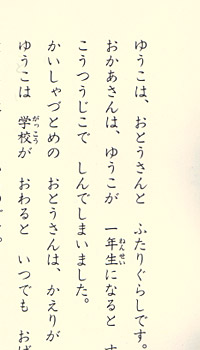 ゆうこは、おとうさんと　ふたりぐらしです。
おかあさんは、ゆうこが　一年生になると
こうつうじこで　しんでしまいました。
かいしゃづとめの　おとうさんは、かえりが
ゆうこは　学校が　おわると　いつでも　おば